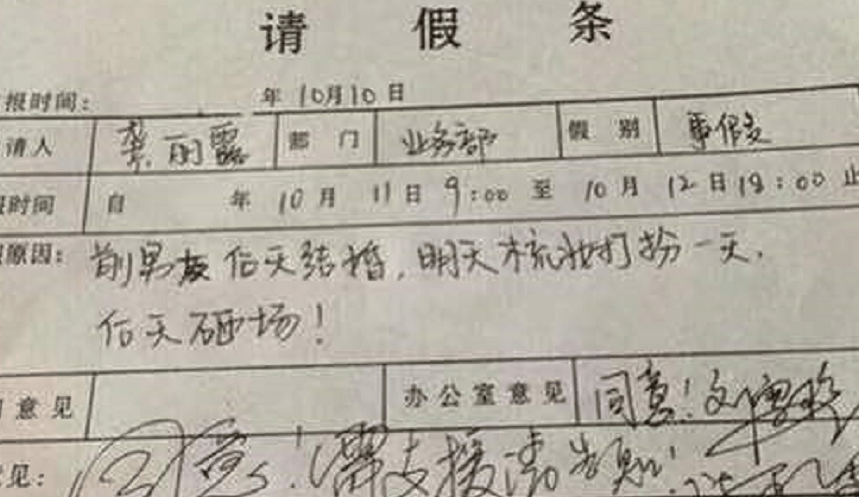 请假条
报时间: 年10月10日
请人 丽露 部门 业务部 假别 事假
时间 自 年10月11日9:00至10月12日18:00止
原因: 前男友后天结婚,明天梳妆打扮一天,
后天砸场!
意见 办公室意见 同意!
见: 同意!需支援请告知!